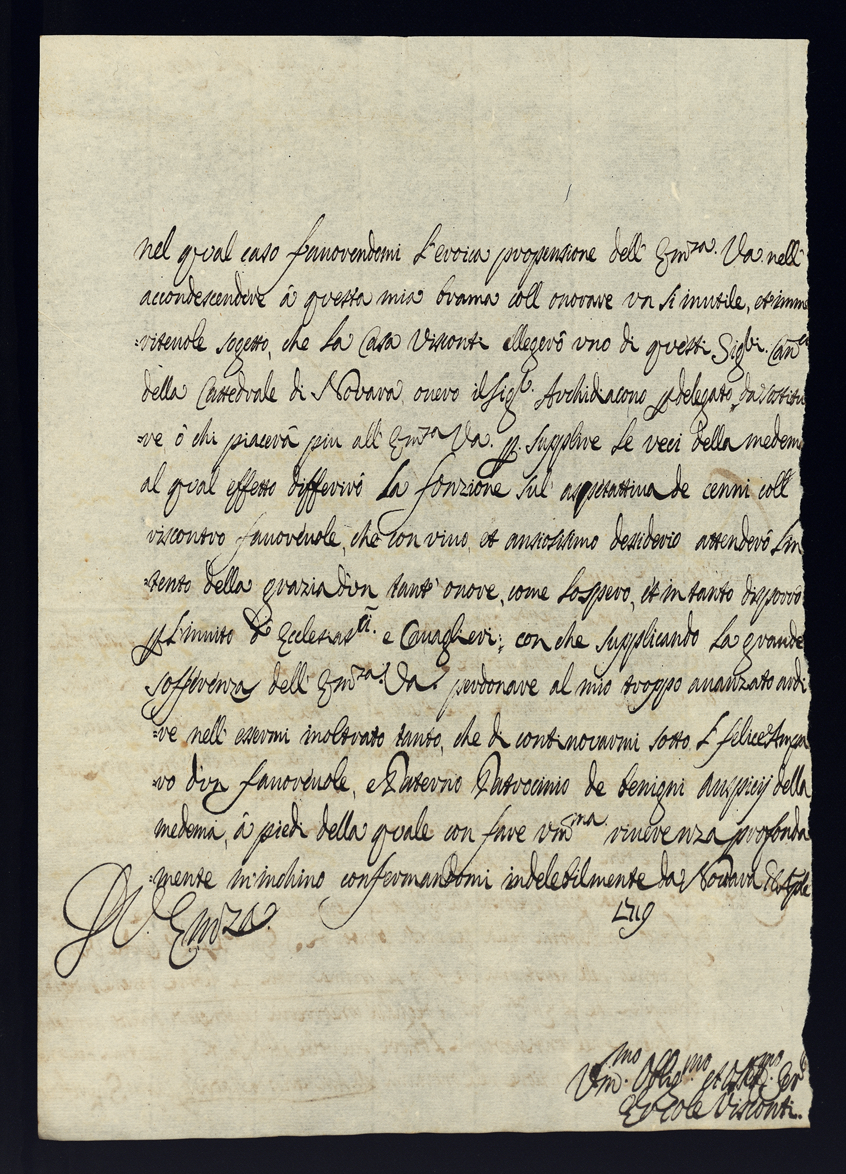 nel qual caso fauorendomi l'eroica propensione dell' Em.za Va. nell'
accondescendere â questa mia brama coll onorare un si inutile, et imme
=riteuole sogetto, che la Casa Visconti ellegerô uno di questi Sig.ri Can.ci
della Cattedrale di Novara, ouero il Sig.r Archidiacono p delegato, da sostitui
=re ô chi piacerâ piu all' Em.za Va. p. supplire le veci della medema
al qual effetto differirô la fonzione sul' aspettattiua de cenni coll'
riscontro fauoreuole, che con viuo, et ansiosissimo desiderio attenderô l'in
=tento della grazia d'un tant' onore, come lo spero, et in tanto disporrô
p l'inuito d' Ecclesias.ci e Cauaglieri; con che supplicando la grande
sofferenza dell' Em.za Va. perdonare al mio troppo auanzato ardi
=re nell' essermi inoltrato tanto, che di continouarmi sotto l'felice Ampa
=ro d'un fauoreuole, e Paterno Patrocinio de benigni auspicij della
medema, â piedi della quale con fare um.ma riuerenza profonda
=mente m'inchino confermandomi indelebilmente da Novara
D. V. Em.za. 1719
Um.mo Oblig.mo et Ser.r
Ercole Visconti.